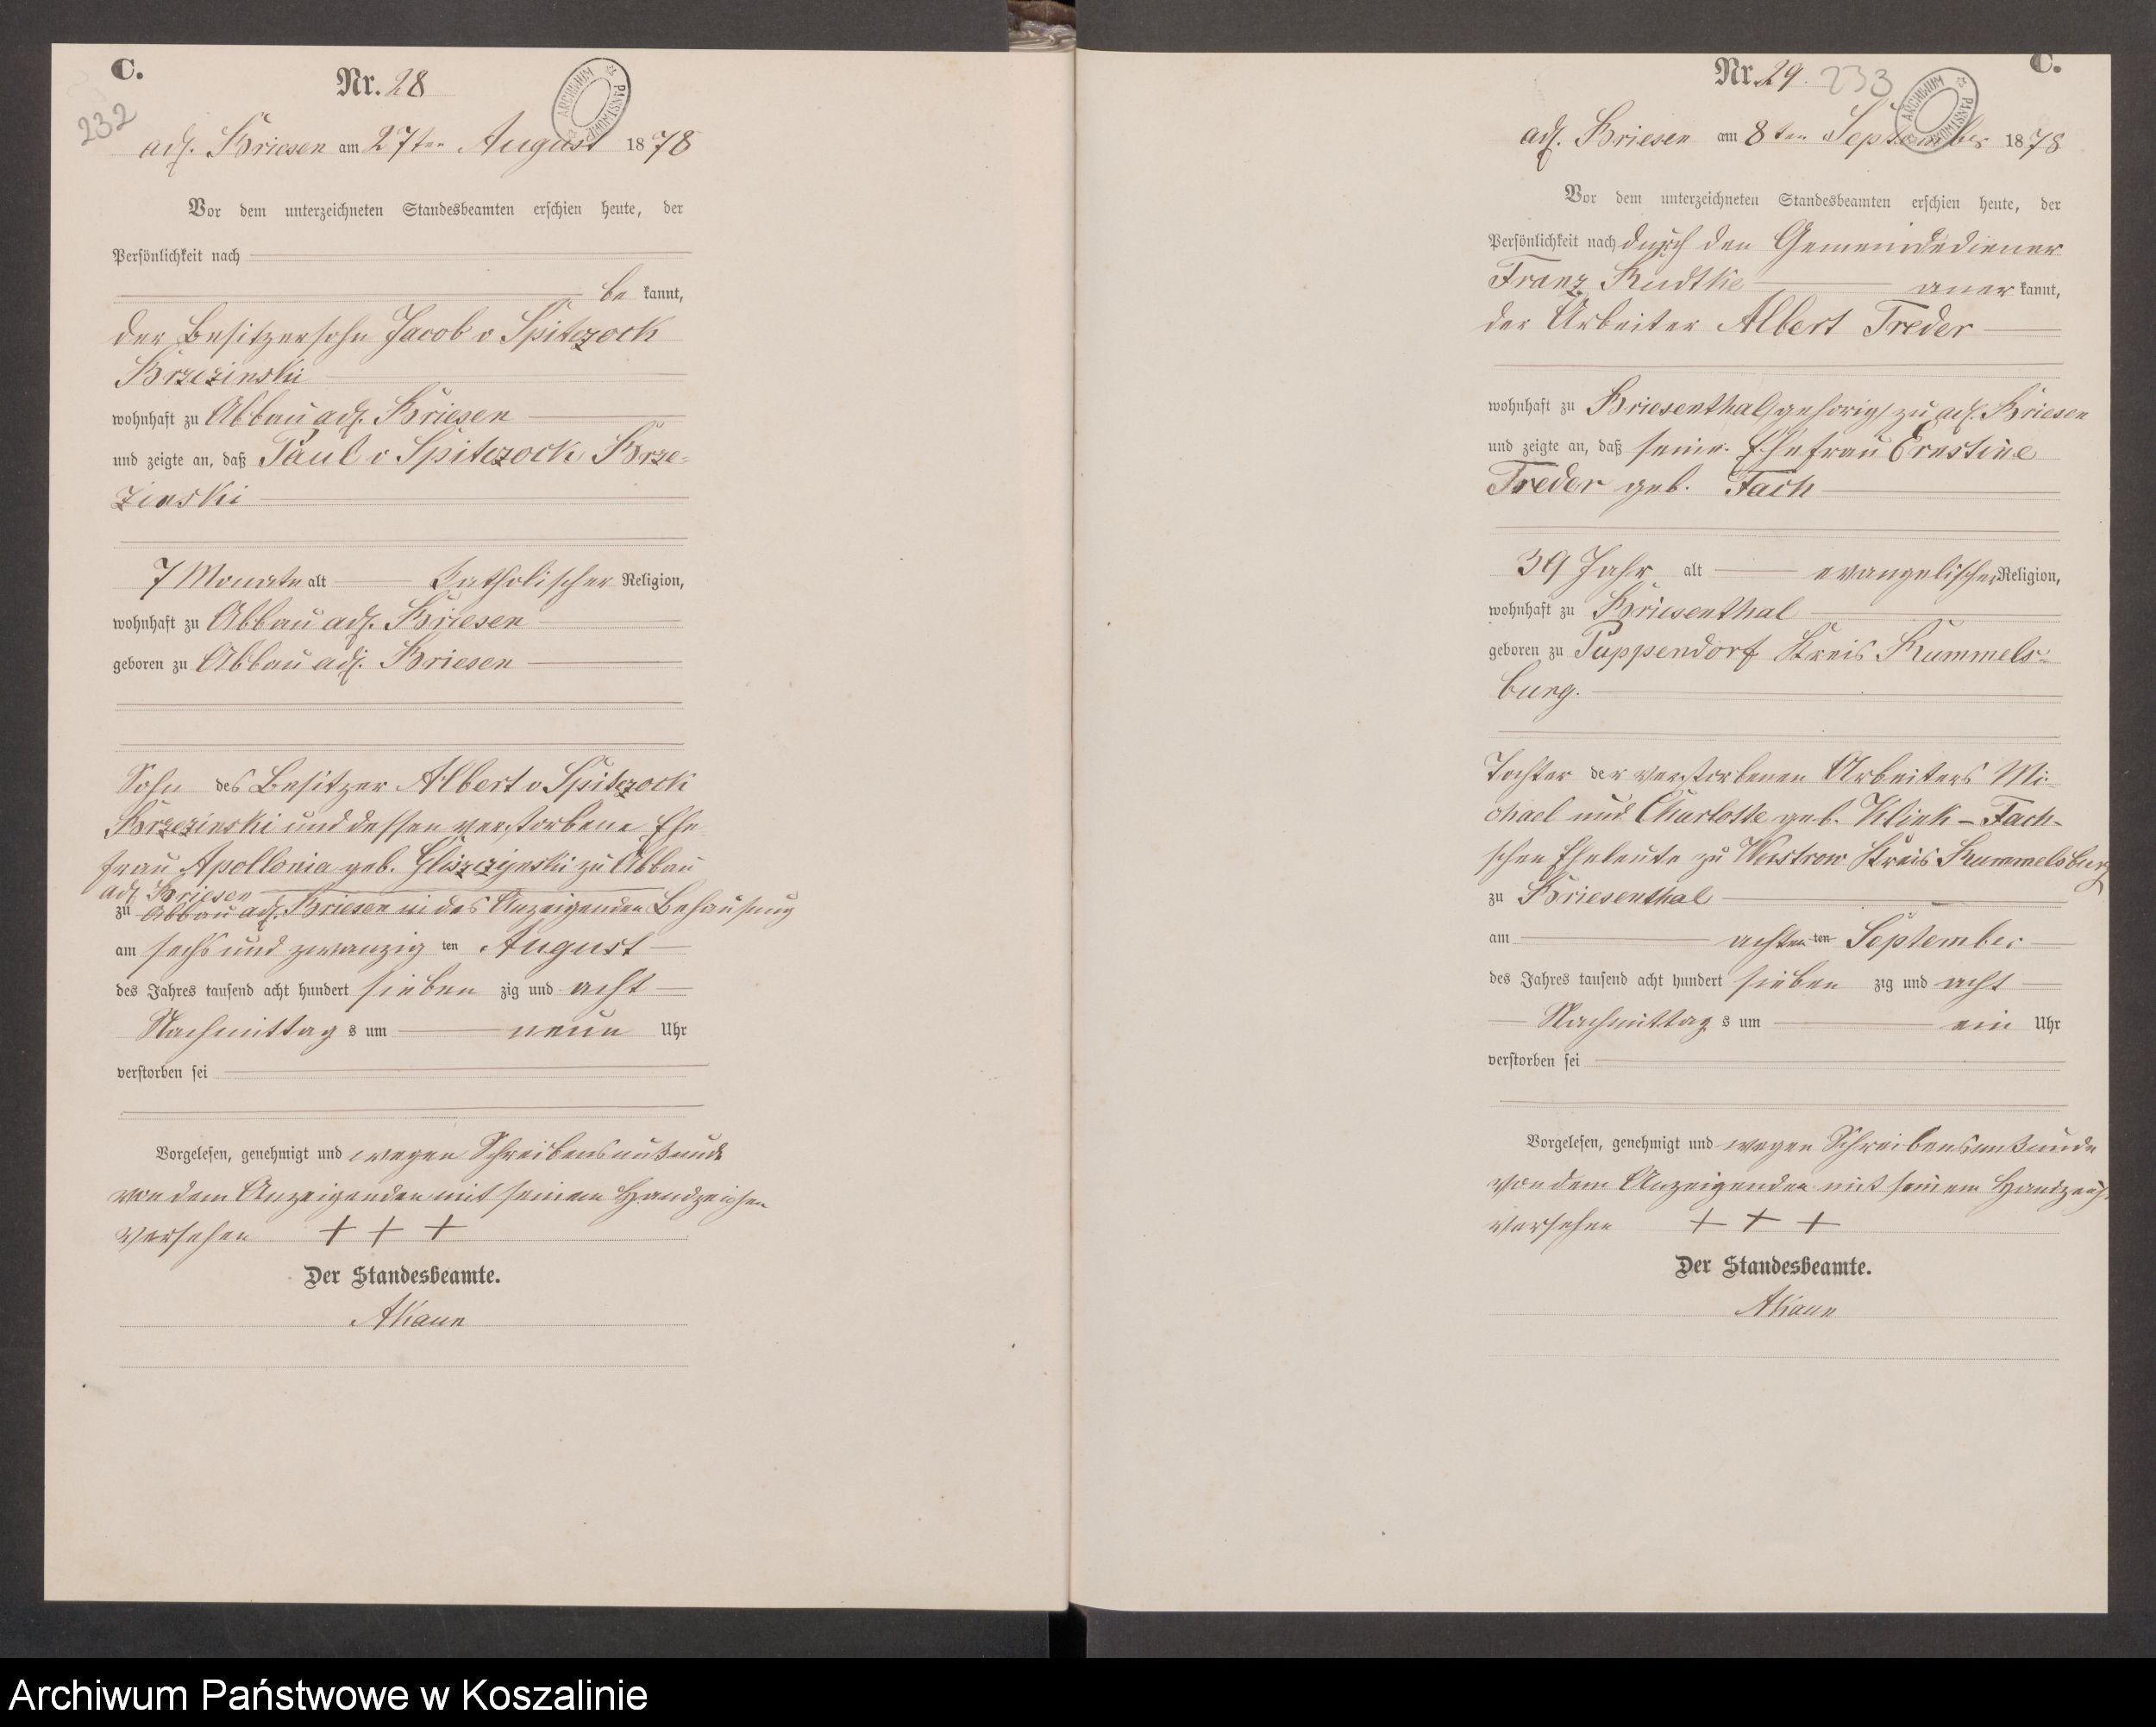 C.
Nr. 28
232
ARCHIWUM PAŃSTWOWE
adl. Briesen am 27ten August 1878
Vor dem unterzeichneten Standesbeamten erschien heute, der
Persönlichkeit nach
be kannt,
der Besitzersohn Jacob v Spiczock
Brzezinski
wohnhaft zu Abbau adl. Briesen
und zeigte an, daß Paul v Spiczock Brze-
zinski
7 Monate alt katholischer Religion,
wohnhaft zu Abbau adl. Briesen
geboren zu Abbau adl. Briesen
Sohn des Besitzer Albert v Spiczock
Brzezinski und dessen verstorbene Ehe
frau Apollonia geb. zu Abbau
adl Briesen
zu Abbau adl. Briesen in des Anzeigenden Behausung
am sechs und zwanzig ten August
des Jahres tausend acht hundert sieben zig und acht
Nachmittag s um neun Uhr
verstorben sei
Vorgelesen, genehmigt und wegen Schreibensunkunde
von dem Anzeigenden mit seinem Handzeichen
versehen + + +
Der Standesbeamte.
AKaun
C.
Nr. 29.
233
ARCHIWUM PAŃSTWOWE
adl. Briesen am 8ten September 1878
Vor dem unterzeichneten Standesbeamten erschien heute, der
Persönlichkeit nach durch den Gemeindediener
Franz Rudtke aner kannt,
der Arbeiter Albert Treder
wohnhaft zu Briesenthal gehörig zu adl. Briesen
und zeigte an, daß seine Ehefrau Ernstine
Treder geb. Fach
39 Jahr alt evangelischer Religion,
wohnhaft zu Briesenthal
geboren zu Puppendorf Kreis Rummels-
burg.
Tochter der verstorbenen Arbeiters Mi-
chael und Charlotte geb. Klink - Fach-
schen Eheleute zu Kreis Rummelsburg
zu Briesenthal
am achten ten September
des Jahres tausend acht hundert sieben zig und acht
Nachmittag s um ein Uhr
verstorben sei
Vorgelesen, genehmigt und wegen Schreibensunkunde
von dem Anzeigenden mit seinem Handzeich
versehen + + +
Der Standesbeamte.
AKaun
Archiwum Państwowe w Koszalinie